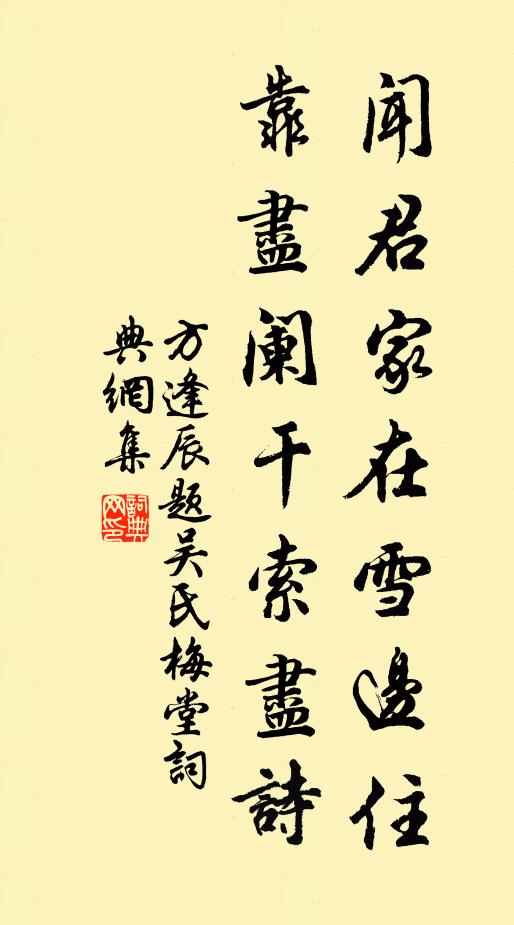 聞君家在雪邊住
靠盡阑干索盡詩
方逢辰题吴氏梅堂詞
典網集
詞典
网印